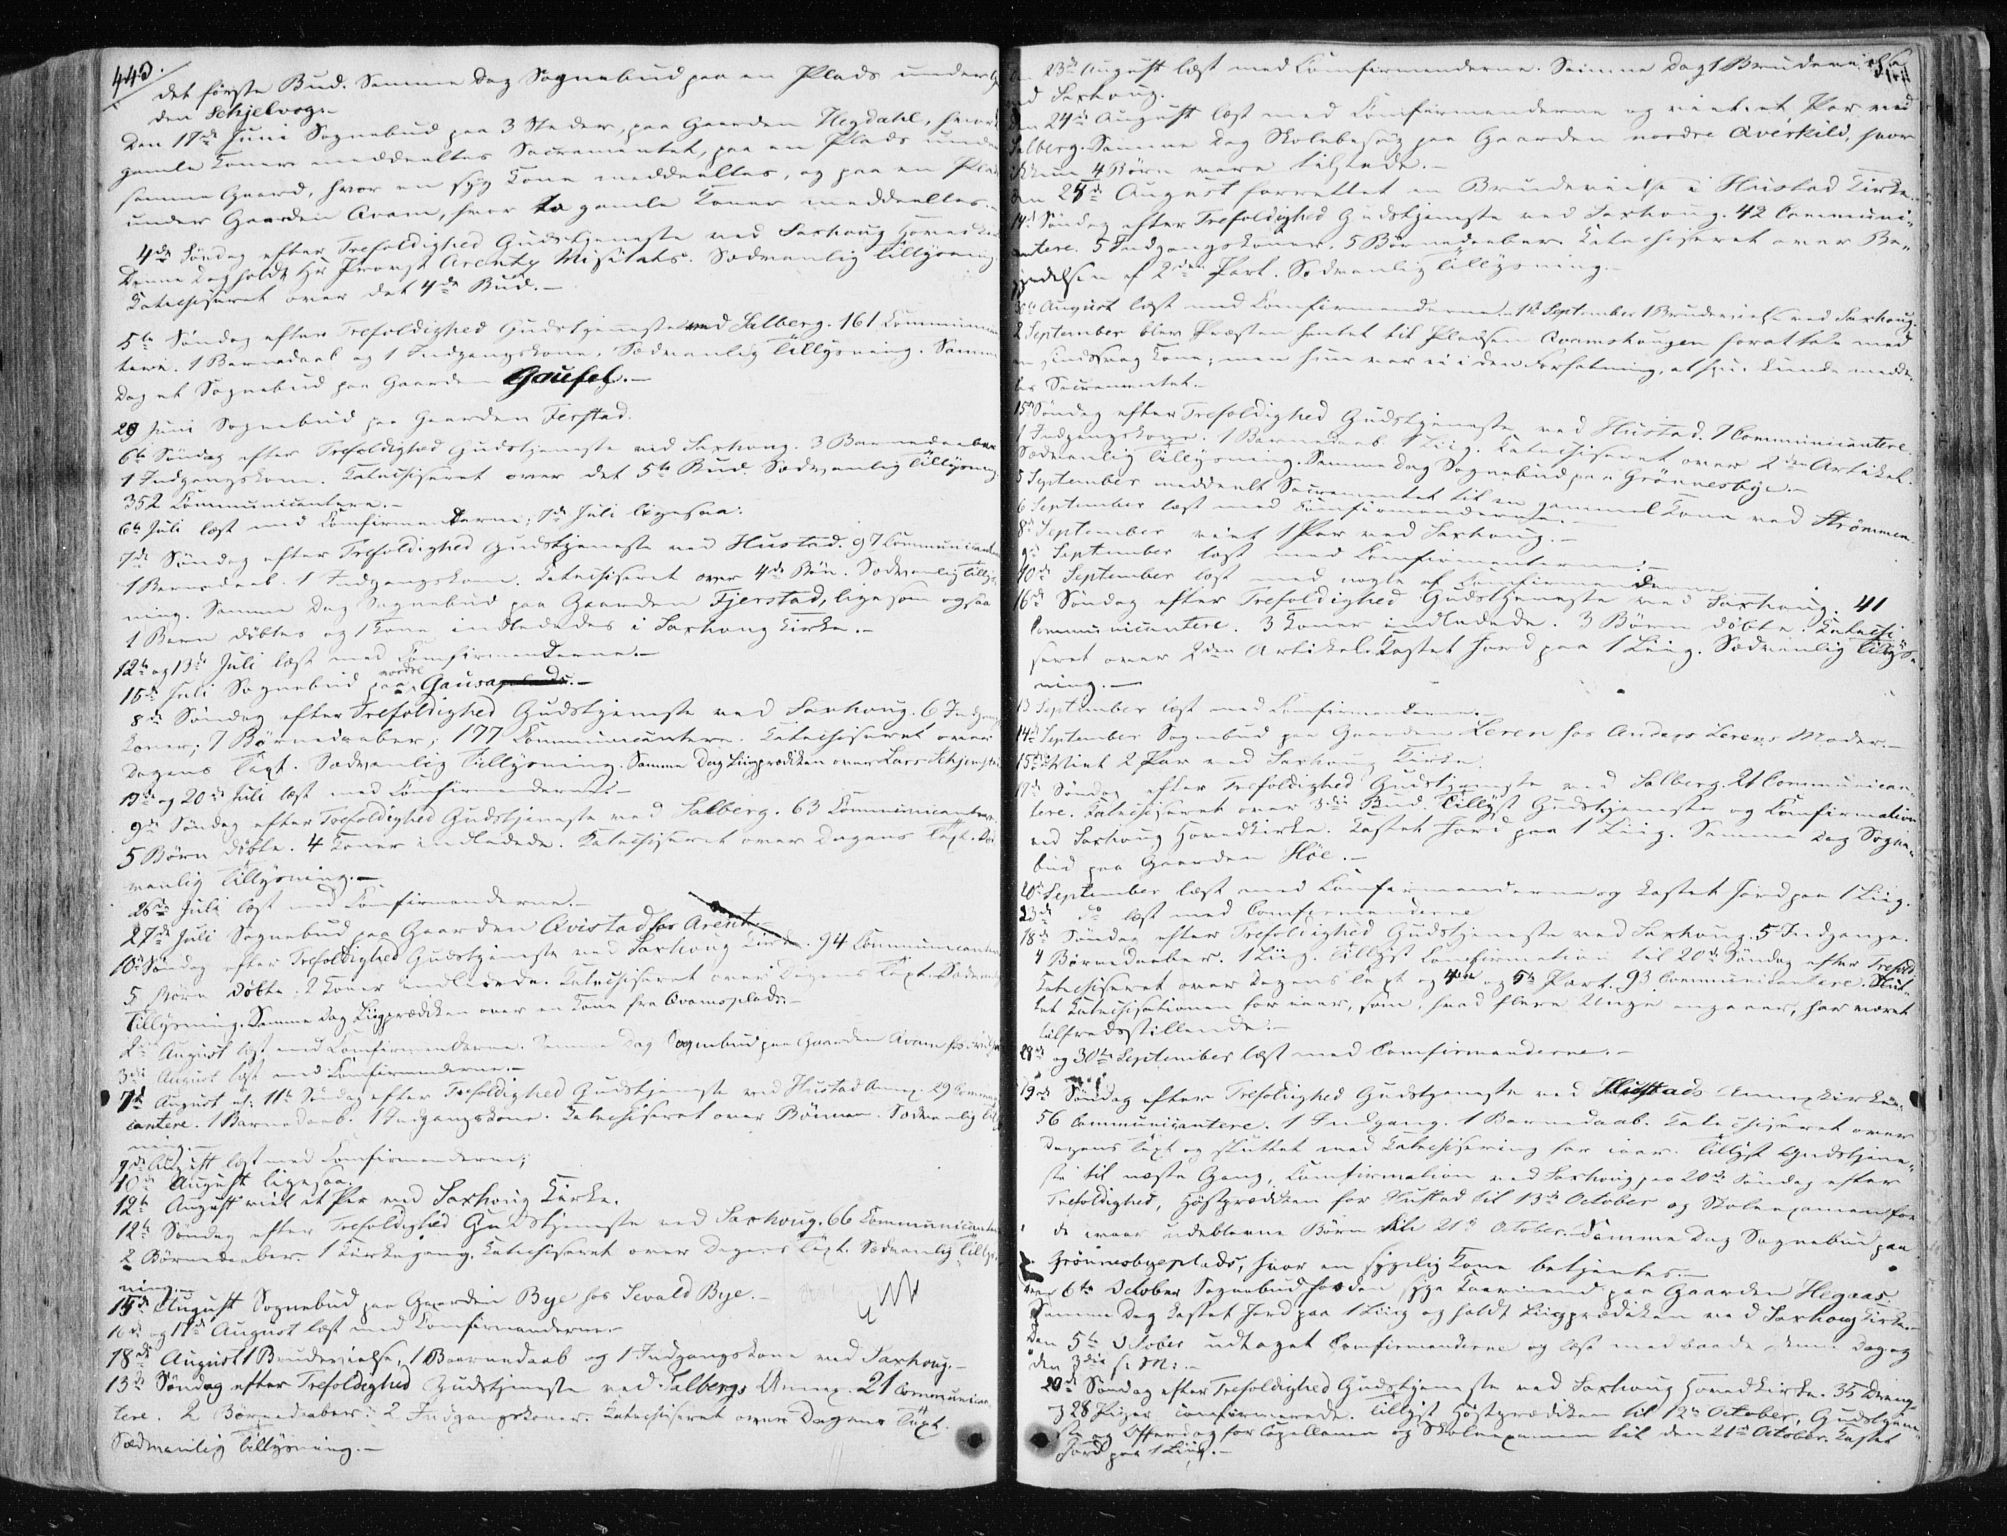 443.
det første Bud. Samme Dag Sognebud paa en Plads under
den Schjelvogn
Den 17de Juni Sognebud paa 3 Steder, paa Gaarden Hegdahl, hvor
gamle Koner meddeeltes Sacramentet, paa en Plads under
samme Gaard, hvor en syg Kone meddeeltes, og paa en Plads
under Gaarden Qvam, hvor to gamle Koner meddeeltes.
4de Søndag efter Trefoldighed Gudstjeneste ved Saxhoug Hoved
Denne Dag holdt Hr Provst Arentz Misitats. Sædvanlig Tillysning
Katechiseret over det 4de Bud.—
5te Søndag efter Trefoldighed Gudstjeneste ved Salberg. 161 Communican
tere. 1 Barnedaab og 1 Indgangskone. Sædvanlig Tillysning. Samme
Dag et Sognebud paa Gaarden Gausel.—
29 Juni Sognebud paa Gaarden Fjerstad.
6te Søndag efter Trefoldighed Gudstjeneste ved Saxhoug. 3 Barnedaaber
1 Indgangskone. Katechiseret over det 5te Bud. Sædvanlig Tillysning.
352 Communicantere.—
6te Juli læst med Confirmanderne; 7de Juli ligesaa.
7de Søndag efter Trefoldighed Gudstjeneste ved Hustad. 97 Communicantere
1 Barnedaab. 1 Indgangskone. Katechiseret over 4de Bøn. Sædvanlig Tillys
ning. Samme Dag Sognebud paa Gaarden Fjerstad, ligesom ogsaa
1 Barn døbtes og 1 Kone indlededes i Saxhoug Kirke.—
12te og 13de Juli læst med Confirmanderne.—
15de Juli Sognebud paa nordre Gausa
8de Søndag efter Trefoldighed Gudstjeneste ved Saxhoug. 6 Indgangs
koner; 7 Børnedaaber; 177 Communicantere. Katechiseret over
Dagens Text. Sædvanlig Tillysning. Samme Dag Liigprædiken over Lars Schjens
19de og 20de Juli læst med Confirmanderne.—
9de Søndag efter Trefoldighed Gudstjeneste ved Salberg. 63 Communicantere.
5 Børn døbte. 4 Koner indledede. Katechiseret over Dagens Text. Sæd
vanlig Tillysning.—
26de Juli læst med Confirmanderne.—
27de Juli Sognebud paa Gaarden Qvistad hos Arent.
10de Søndag efter Trefoldighed Gudstjeneste ved Saxhoug Kirke. 94 Communicantere
5 Børn døbte. 2 Koner indledede. Katechiseret over Dagens Text. Sædvanlig
Tillysning. Samme Dag Liigprædiken over en Kone fra Qvamsplads.—
2den August læst med Confirmanderne. Samme Dag Sognebud paa Gaarden Qvam
3die August læst med Confirmanderne.—
7de August et: 11te Søndag efter Trefoldighed Gudstjeneste ved Hustad Annex. 29 Communi
cantere. 1 Barnedaab. 1 Indgangskone. Katechiseret over Bønnen. Sædvanlig Tillys
ning.—
9de August læst med Confirmanderne;
10de August ligesaa.
12te August viet et Par ved Saxhoug Kirke.
12te Søndag efter Trefoldighed Gudstjeneste ved Saxhoug. 66 Communicantere
2 Børnedaaber. 1 Kirkegang. Katechiseret over Dagens Text. Sædvanlig Tillys
ning.—
15de August Sognebud paa Gaarden Bye hos Sevald Bye.—
16de og 17de August læst med Confirmanderne.
18de August 1 Brudevielse, 1 Barnedaab og 1 Indgangskone ved Saxhoug.—
13de Søndag efter Trefoldighed Gudstjeneste ved Salbergs Annex. 21 Communican
tere. 2 Børnedaaber. 2 Indgangskoner. Katechiseret over Dagens Text.
Sædvanlig Tillysning.—
den 23de August læst med Confirmanderne. Samme Dag 1 Brudevielse
ved Saxhoug.
den 24de August læst med Confirmanderne og viet et Par ved
Salberg. Samme Dag Skolebesøg paa Gaarden nordre Qverkild, hvor
ikkun 4 Børn vare tilstede.—
den 25de August forrettet en Brudevielse i Hustad Kirke.
14de Søndag efter Trefoldighed Gudstjeneste ved Saxhoug. 42 Communi-
cantere. 5 Indgangskoner. 5 Børnedaaber. Katechiseret over Be-
gyndelsen af 2den Part. Sædvanlig Tillysning.—
30te August læst med Confirmanderne. 1ste September 1 Brudevielse ved Saxhoug.
2 September blev Præsten hentet til Pladsen Qvamshaugen for at tale med
en sindssvag Kone; men hun var ei i den Forfatning, at hun kunde medde-
les Sacramentet.—
15de Søndag efter Trefoldighed Gudstjeneste ved Hustad. 7 Communicantere.
1 Indgangskone. 1 Barnedaab. 1 Liig. Katechiseret over 2den Artikel.
Sædvanlig Tillysning. Samme Dag Sognebud paa Grønnesbye.—
5 September meddeelt Sacramentet til en gammel Kone ved Strømmen
6 September læst med Confirmanderne.—
8de September viet 1 Par ved Saxhoug.—
9de September læst med Confirmanterne.—
10de September læst med nogle af Confirmanderne
16de Søndag efter Trefoldighed Gudstjeneste ved Saxhoug. 41
Communicantere. 3 Koner indledede. 3 Børn døbte. Katechi-
seret over 2den Artikel. Kastet Jord paa 1 Liig. Sædvanlig Tillys-
ning.—
13 September læst med Confirmanderne.—
14de September Sognebud paa Gaarden Leren hos Anders Lerens Moder.—
15de Viet 2 Par ved Saxhoug Kirke.
17de Søndag efter Trefoldighed Gudstjeneste ved Salberg. 21 Communican-
tere. Katechiseret over 3die Bud. Tillyst Gudstjeneste og Confirmation
ved Saxhoug Hovedkirke. Kastet Jord paa 1 Liig. Samme Dag Sogne-
bud paa Gaarden Høe.—
20de September læst med Confirmanderne og kastet Jord paa 1 Liig.
23de do læst med Comfirmanderne
18de Søndag efter Trefoldighed Gudstjeneste ved Saxhoug. 5 Indgange.
4 Børnedaaber. 1 Liig. Tillyst Confirmation til 20de Søndag efter Trefold.
Katechiseret over Dagens Text og 4de og 5te Part. 93 Communicantere. Slut-
tet Katechisationen for iaar, som, hvad flere Unge angaaer, har været
tilfredsstillende.—
28de og 30te September læst med Comfirmanderne.—
19de Søndag efter Trefoldighed Gudstjeneste ved Hustads Annexkirke.
56 Communicantere. 1 Indgang. 1 Barnedaab. Katechiseret over
Dagens Text og sluttet med Katechisering for iaar. Tillyst Gudstjene-
ste til næste Gang, Confirmation ved Saxhoug paa 20de Søndag efter
Trefoldighed, Høstprædiken for Hustad til 13de October og Skoleexamen for
de iaar udeblevne Børn til 21de October. Samme Dag Sognebud paa
Grønnesbyeplads, hvor en sygelig Kone betjentes.—
Den 6te October Sognebud hos den syge paa Gaarden Hegaas.
Samme Dag kastet Jord paa 1 Liig og holdt Liigprædiken ved Saxhoug Kirke.
Den 5te October udtaget Comfirmanderne og læst med baade denne Dag og
den 3die s. M.—
20de Søndag efter Trefoldighed Gudstjeneste ved Saxhoug Hovedkirke. 35 Drenge
og 28 Piger confirmerede. Tillyst Høstprædiken til 12te October, Gudstjene-
ste og Offerdag for Capellanen og Skoleexamen til den 21de October. Kastet
Jord paa 1 Liig.—